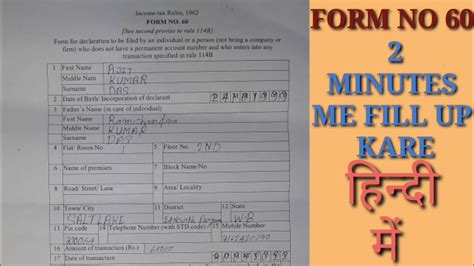 Income-tax Rules, 1962
FORM NO. 60
[See second proviso to rule 114B]
Form for declaration to be filed by an individual or a person (not being a company or
firm) who does not have a permanent account number and who enters into any
transaction specified in rule 114B
1 First Name
Middle Nam KUMAR
Surname DAS
2 Date of Birth/ Incorporation of declarant
3 Father's Name (in case of individual)
First Name
Middle Name KUMAR
Surname DAS
4 Flat/ Room No. 1 5 Floor No. 2ND
6 Name of premises 7 Block Name/No
8 Road/ Street/ Lane 9 Area/ Locality
10 Town/ City SALTLAKE 11 District 12 State WB
13 Pin code 14 Telephone Number (with STD code) 15 Mobile Number
16 Amount of transaction (Rs.)
17 Date of transaction
FORM NO 60
2
MINUTES
ME FILL UP
KARE
हिन्दी
में